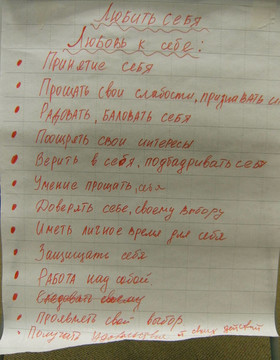 Любить себя
Любовь к себе:
• Принятие себя
• Прощать свои слабости, признавать
• Радовать, баловать себя
• Поощрять свои интересы
• Верить в себя, подбадривать себя
• Умение прощать себя
• Доверять себе, своему выбору
• Иметь личное время для себя
• Защищать себя
• Работа над собой
• Следовать своему
• Проявлять свой выбор
• Получать удовольствие от своих действий